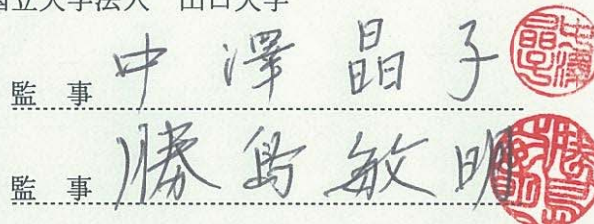 国立大学法人 山口大学
監 事 中 澤 晶 子
監 事 勝 島 敏 明